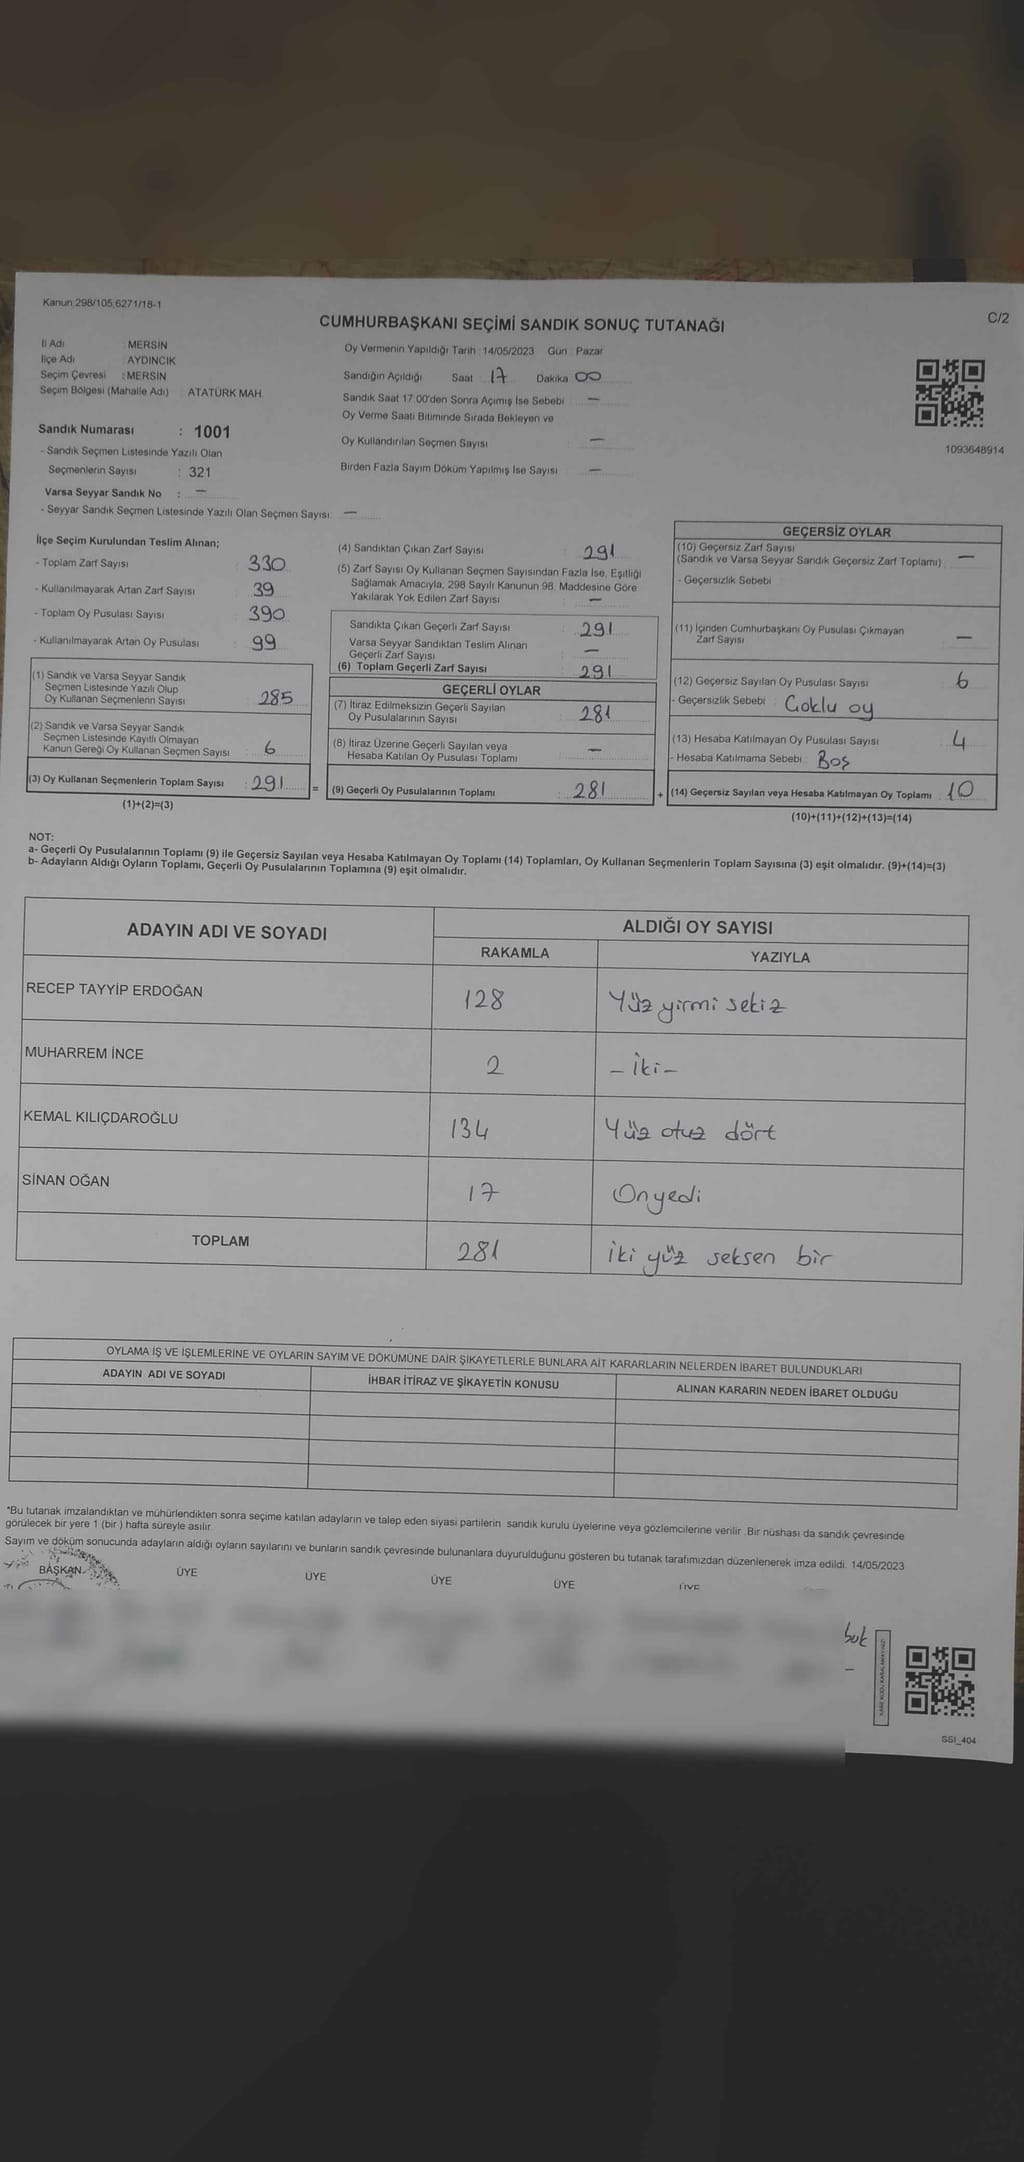 Kanun:298/105,6271/18-1
C/2
CUMHURBAŞKANI SEÇİMİ SANDIK SONUÇ TUTANAĞI
İl Adı : MERSİN
İlçe Adı : AYDINCIK
Seçim Çevresi : MERSİN
Seçim Bölgesi (Mahalle Adı) : ATATÜRK MAH.
Sandık Numarası : 1001
- Sandık Seçmen Listesinde Yazılı Olan
Seçmenlerin Sayısı : 321
Varsa Seyyar Sandık No : —
- Seyyar Sandık Seçmen Listesinde Yazılı Olan Seçmen Sayısı: —
Oy Vermenin Yapıldığı Tarih : 14/05/2023 Gün : Pazar
Sandığın Açıldığı Saat : 17 Dakika : 00
Sandık Saat 17.00'den Sonra Açımış İse Sebebi : —
Oy Verme Saati Bitiminde Sırada Bekleyen ve
Oy Kullandırılan Seçmen Sayısı : —
Birden Fazla Sayım Döküm Yapılmış İse Sayısı : —
1093648914
İlçe Seçim Kurulundan Teslim Alınan;
- Toplam Zarf Sayısı : 330
- Kullanılmayarak Artan Zarf Sayısı : 39
- Toplam Oy Pusulası Sayısı : 390
- Kullanılmayarak Artan Oy Pusulası : 99
(1) Sandık ve Varsa Seyyar Sandık
Seçmen Listesinde Yazılı Olup
Oy Kullanan Seçmenlerin Sayısı : 285
(2) Sandık ve Varsa Seyyar Sandık
Seçmen Listesinde Kayıtlı Olmayan
Kanun Gereği Oy Kullanan Seçmen Sayısı : 6
(3) Oy Kullanan Seçmenlerin Toplam Sayısı : 291 =
(1)+(2)=(3)
(4) Sandıktan Çıkan Zarf Sayısı : 291
(5) Zarf Sayısı Oy Kullanan Seçmen Sayısından Fazla İse, Eşitliği
Sağlamak Amacıyla; 298 Sayılı Kanunun 98. Maddesine Göre
Yakılarak Yok Edilen Zarf Sayısı : —
Sandıkta Çıkan Geçerli Zarf Sayısı : 291
Varsa Seyyar Sandıktan Teslim Alınan
Geçerli Zarf Sayısı : —
(6) Toplam Geçerli Zarf Sayısı : 291
GEÇERLİ OYLAR
(7) İtiraz Edilmeksizin Geçerli Sayılan
Oy Pusulalarının Sayısı : 281
(8) İtiraz Üzerine Geçerli Sayılan veya
Hesaba Katılan Oy Pusulası Toplamı : —
(9) Geçerli Oy Pusulalarının Toplamı : 281 +
GEÇERSİZ OYLAR
(10) Geçersiz Zarf Sayısı
(Sandık ve Varsa Seyyar Sandık Geçersiz Zarf Toplamı) : —
- Geçersizlik Sebebi :
(11) İçinden Cumhurbaşkanı Oy Pusulası Çıkmayan
Zarf Sayısı : —
(12) Geçersiz Sayılan Oy Pusulası Sayısı : 6
- Geçersizlik Sebebi : Çoklu oy
(13) Hesaba Katılmayan Oy Pusulası Sayısı : 4
- Hesaba Katılmama Sebebi : Boş
(14) Geçersiz Sayılan veya Hesaba Katılmayan Oy Toplamı : 10
(10)+(11)+(12)+(13)=(14)
NOT:
a- Geçerli Oy Pusulalarının Toplamı (9) ile Geçersiz Sayılan veya Hesaba Katılmayan Oy Toplamı (14) Toplamları, Oy Kullanan Seçmenlerin Toplam Sayısına (3) eşit olmalıdır. (9)+(14)=(3)
b- Adayların Aldığı Oyların Toplamı, Geçerli Oy Pusulalarının Toplamına (9) eşit olmalıdır.
ADAYIN ADI VE SOYADI
ALDIĞI OY SAYISI
RAKAMLA YAZIYLA
RECEP TAYYİP ERDOĞAN 128 Yüz yirmi sekiz
MUHARREM İNCE 2 - İki -
KEMAL KILIÇDAROĞLU 134 Yüz otuz dört
SİNAN OĞAN 17 Onyedi
TOPLAM 281 iki yüz seksen bir
OYLAMA İŞ VE İŞLEMLERİNE VE OYLARIN SAYIM VE DÖKÜMÜNE DAİR ŞİKAYETLERLE BUNLARA AİT KARARLARIN NELERDEN İBARET BULUNDUKLARI
ADAYIN ADI VE SOYADI İHBAR İTİRAZ VE ŞİKAYETİN KONUSU ALINAN KARARIN NEDEN İBARET OLDUĞU
*Bu tutanak imzalandıktan ve mühürlendikten sonra seçime katılan adayların ve talep eden siyasi partilerin sandık kurulu üyelerine veya gözlemcilerine verilir. Bir nüshası da sandık çevresinde
görülecek bir yere 1 (bir ) hafta süreyle asılır.
Sayım ve döküm sonucunda adayların aldığı oyların sayılarını ve bunların sandık çevresinde bulunanlara duyurulduğunu gösteren bu tutanak tarafımızdan düzenlenerek imza edildi. 14/05/2023
BAŞKAN ÜYE ÜYE ÜYE ÜYE ÜYE
SSI_404